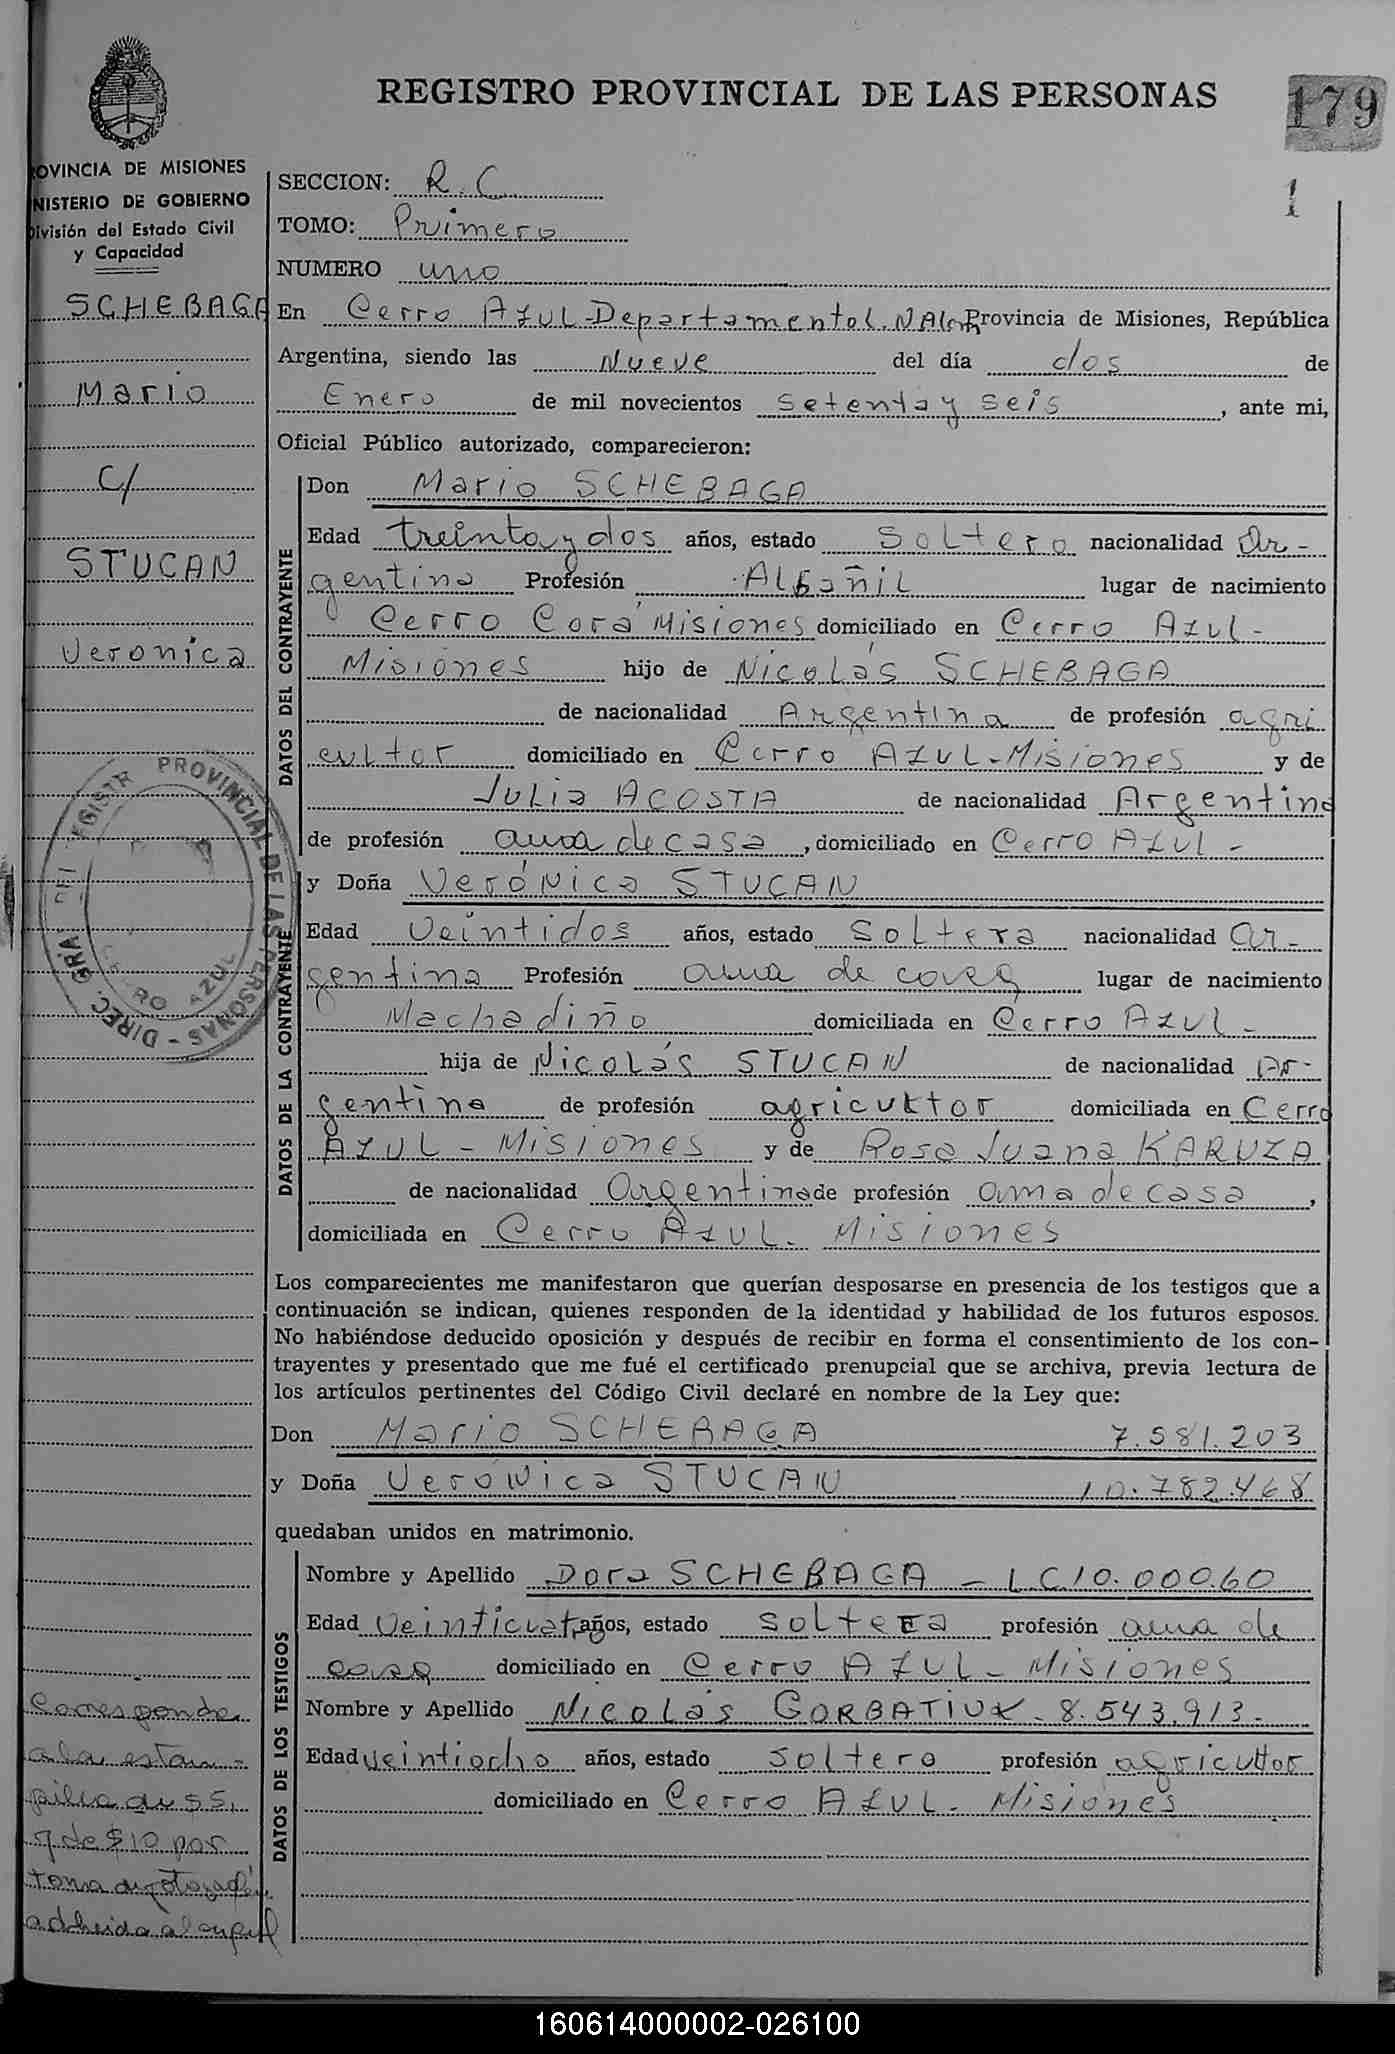 REGISTRO PROVINCIAL DE LAS PERSONAS
179
1
OVINCIA DE MISIONES
NISTERIO DE GOBIERNO
División del Estado Civil
y Capacidad
SCHEBAGA
Mario
C/
STUCAN
Veronica
DIREC. GRAL DEL REGISTR PROVINCIAL DE LAS PERSONAS -
CERRO AZUL
Corresponde
a la estam-
pilla de $5.
y de $10 por
toma de
adherida al
SECCION: R.C
TOMO: Primero
NUMERO uno
En Cerro Azul-Departamento L.N.Alem Provincia de Misiones, República
Argentina, siendo las Nueve del día dos de
Enero de mil novecientos setenta y seis, ante mi,
Oficial Público autorizado, comparecieron:
DATOS DEL CONTRAYENTE
Don Mario SCHEBAGA
Edad treinta y dos años, estado soltero nacionalidad Ar-
gentina Profesión Albañil lugar de nacimiento
Cerro Corá Misiones domiciliado en Cerro Azul-
Misiones hijo de Nicolás SCHEBAGA
de nacionalidad Argentina de profesión agri
cultor domiciliado en Cerro Azul-Misiones y de
Julia ACOSTA de nacionalidad Argentina
de profesión ama de casa, domiciliado en Cerro Azul-
DATOS DE LA CONTRAYENTE
y Doña Verónica STUCAN
Edad Veintidos años, estado soltera nacionalidad ar-
gentina Profesión ama de casa lugar de nacimiento
Machadiño domiciliada en Cerro Azul-
hija de Nicolás STUCAN de nacionalidad Ar-
gentina de profesión agricultor domiciliada en Cerro
Azul-Misiones y de Rosa Juana KARUZA
de nacionalidad Argentina de profesión ama de casa,
domiciliada en Cerro Azul. Misiones
Los comparecientes me manifestaron que querían desposarse en presencia de los testigos que a
continuación se indican, quienes responden de la identidad y habilidad de los futuros esposos.
No habiéndose deducido oposición y después de recibir en forma el consentimiento de los con-
trayentes y presentado que me fué el certificado prenupcial que se archiva, previa lectura de
los artículos pertinentes del Código Civil declaré en nombre de la Ley que:
Don Mario SCHEBAGA 7.581.203
y Doña Verónica STUCAN 10.782.468
quedaban unidos en matrimonio.
DATOS DE LOS TESTIGOS
Nombre y Apellido Dora SCHEBAGA - LC10.000.60
Edad Veinticuat. años, estado soltera profesión ama de
casa domiciliado en Cerro Azul-Misiones
Nombre y Apellido Nicolás GORBATIUK-8.543.913-
Edad veintiocho años, estado soltero profesión agricultor
domiciliado en Cerro Azul-Misiones
160614000002-026100